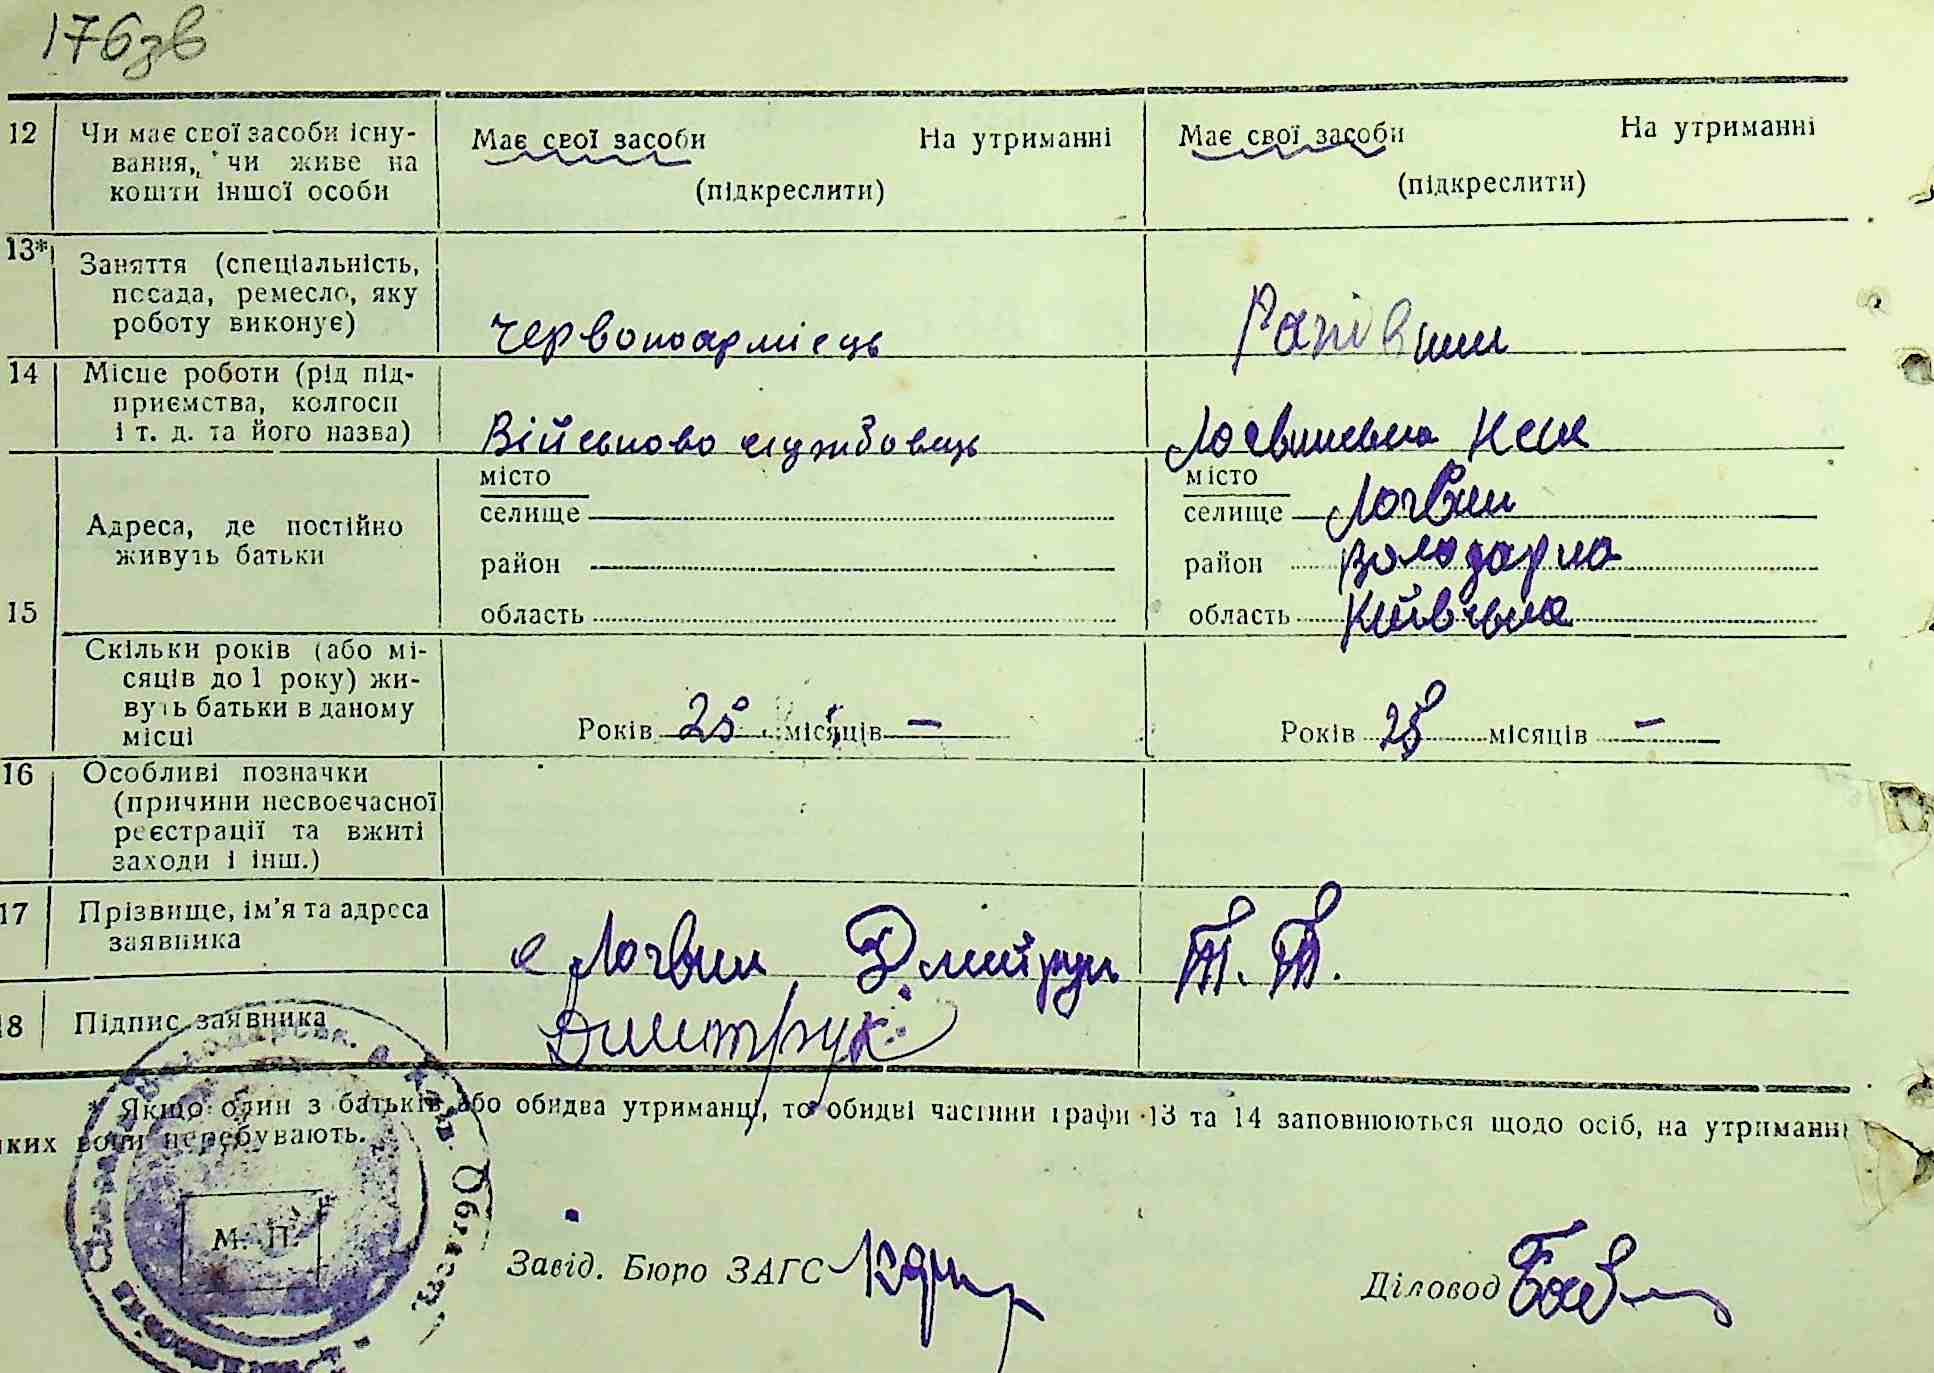 176зв
12 Чи має свої засоби існу-
вання, чи живе на
кошти іншої особи
Має свої засоби На утриманні
(підкреслити)
Має свої засоби На утриманні
(підкреслити)
13* Заняття (спеціальність,
посада, ремесло, яку
роботу виконує)
червоноармієць
14 Місце роботи (рід під-
приємства, колгосп
і т. д. та його назва)
Військово службовець
15 Адреса, де постійно
живуть батьки
місто
селище
район
область
місто
селище Логвин
район Володарка
область Київська
Скільки років (або мі-
сяців до 1 року) жи-
вуть батьки в даному
місці
Років 25 місяців —
Років 25 місяців —
16 Особливі позначки
(причини несвоєчасної
реєстрації та вжиті
заходи і інш.)
17 Прізвище, ім'я та адреса
заявника
с Логвин Дмитрук Т. Т.
18 Підпис заявника
Дмитрук
* Якщо один з батьків або обидва утриманці, то обидві частини графи 13 та 14 заповнюються щодо осіб, на утриманні
яких вони перебувають.
М. П.
Завід. Бюро ЗАГС
Діловод